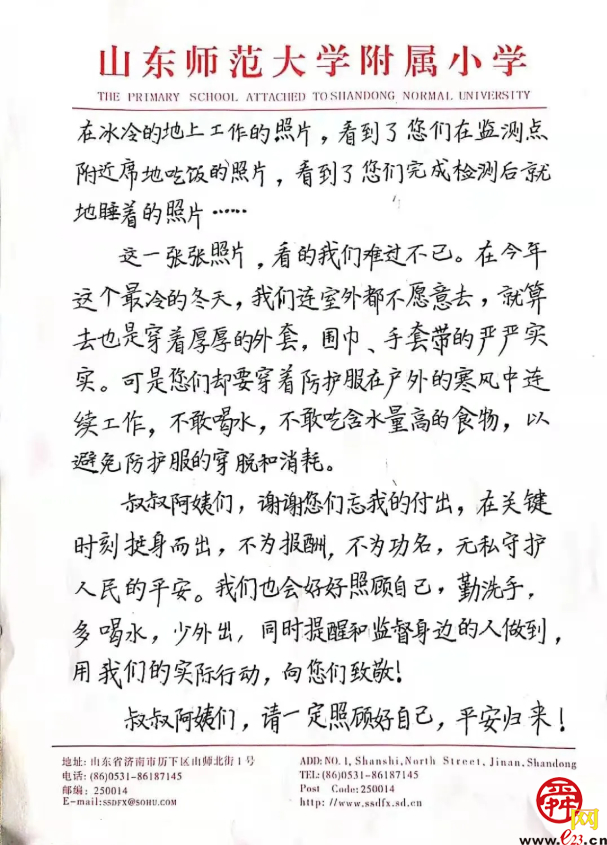 山东师范大学附属小学
THE PRIMARY SCHOOL ATTACHED TO SHANDONG NORMAL UNIVERSITY
在冰冷的地上工作的照片，看到了您们在监测点
附近席地吃饭的照片，看到了您们完成检测后就
地睡着的照片……
这一张张照片，看的我们难过不已。在今年
这个最冷的冬天，我们连室外都不愿意去，就算
去也是穿着厚厚的外套，围巾、手套带的严严实
实。可是您们却要穿着防护服在户外的寒风中连
续工作，不敢喝水，不敢吃含水量高的食物，以
避免防护服的穿脱和消耗。
叔叔阿姨们，谢谢您们忘我的付出，在关键
时刻挺身而出，不为报酬，不为功名，无私守护
人民的平安。我们也会好好照顾自己，勤洗手，
多喝水，少外出，同时提醒和监督身边的人做到，
用我们的实际行动，向您们致敬！
叔叔阿姨们，请一定照顾好自己，平安归来！
地址: 山东省济南市历下区山师北街1号
电话: (86)0531-86187145
邮编: 250014
E-mail:SSDFX@SOHU.COM
ADD: NO.1, Shanshi,North Street, Jinan,Shandong
TEL:(86)0531-86187145
Post Code:250014
http://www.ssdfx.sd.cn
舜网
www.e23.cn